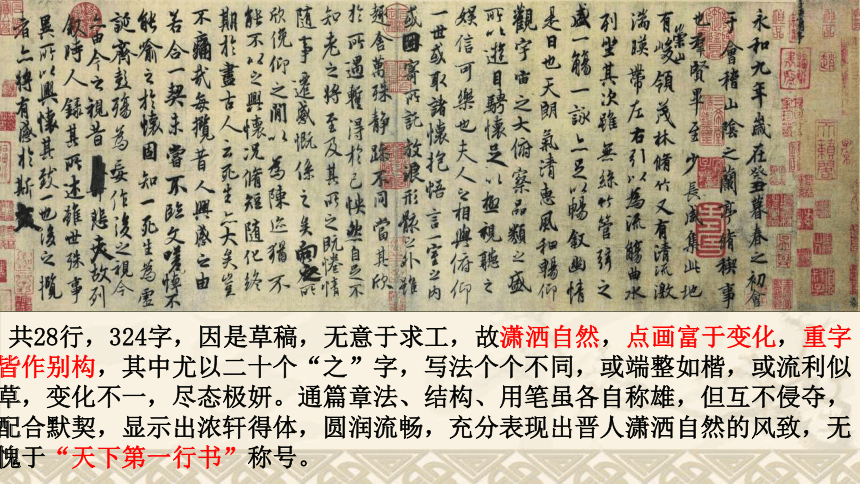 永和九年歲在癸丑暮春之初會
于會稽山陰之蘭亭脩稧事
也羣賢畢至少長咸集此地
有崇山峻領茂林脩竹又有清流激
湍暎帶左右引以為流觴曲水
列坐其次雖無絲竹管弦之
盛一觴一詠亦足以暢敘幽情
是日也天朗氣清惠風和暢仰
觀宇宙之大俯察品類之盛
所以遊目騁懷足以極視聽之
娛信可樂也夫人之相與俯仰
一世或取諸懷抱悟言一室之內
或因寄所託放浪形骸之外雖
趣舍萬殊靜躁不同當其欣
於所遇蹔得於己怏然自足不
知老之將至及其所之既惓情
隨事遷感慨係之矣向之所
欣俛仰之間以為陳迹猶不
能不以之興懷況脩短隨化終
期於盡古人云死生亦大矣豈
不痛哉每攬昔人興感之由
若合一契未嘗不臨文嗟悼不
能喻之於懷固知一死生為虛
誕齊彭殤為妄作後之視今
亦由今之視昔悲夫故列
敘時人錄其所述雖世殊事
異所以興懷其致一也後之攬
者亦將有感於斯文
共28行，324字，因是草稿，无意于求工，故潇洒自然，点画富于变化，重字
皆作别构，其中尤以二十个“之”字，写法个个不同，或端整如楷，或流利似
草，变化不一，尽态极妍。通篇章法、结构、用笔虽各自称雄，但互不侵夺，
配合默契，显示出浓轩得体，圆润流畅，充分表现出晋人潇洒自然的风致，无
愧于“天下第一行书”称号。